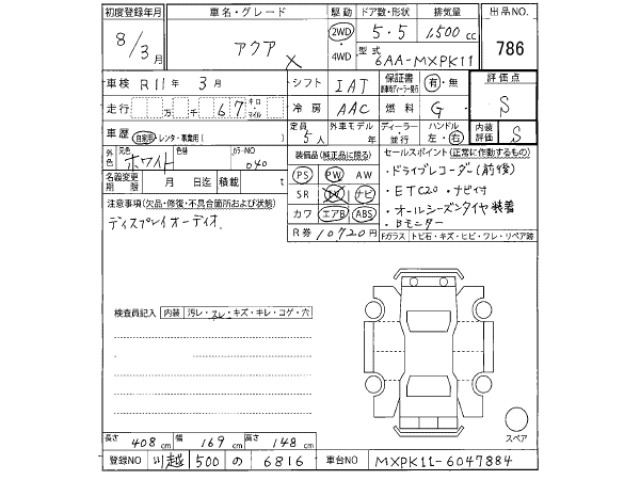 初度登録年月 車名・グレード 駆動 ドア数・形状 排気量 出品NO.
8/3月 アクア X 2WD ・4WD 5・5 1,500cc 786
型式 6AA-MXPK11
車検 R11年 3月 シフト IAT 保証書 有・無 評価点 S
走行 万 千 67 キロ・マイル 冷房 AAC 燃料 G
車歴 自家用・レンタ・事業用( ) 定員 5人 外車モデル 年 ディーラー・並行 ハンドル 左・右 内装評価 S
外色 元色 ホワイト 色替 カラーNO 040 装備品(純正品に限る) セールスポイント(正常に作動するもの)
名義変更期限 月 日迄 積載 t PS PW AW ・ドライブレコーダー(前後)
注意事項(欠品・修復・不具合箇所および状態) SR ナビ ・ETC20 ・ナビ付
ディスプレイオーディオ. カワ エアB ABS ・オールシーズンタイヤ装着
R券 10720円 ・Bモニター
Fガラス トビ石・キズ・ヒビ・ワレ・リペア跡
検査員記入 内装 汚レ・スレ・キズ・キレ・コゲ・穴
スペア
長さ 408cm 幅 169cm 高さ 148cm
登録NO 川越 500 の 6816 車台NO MXPK11-6047884